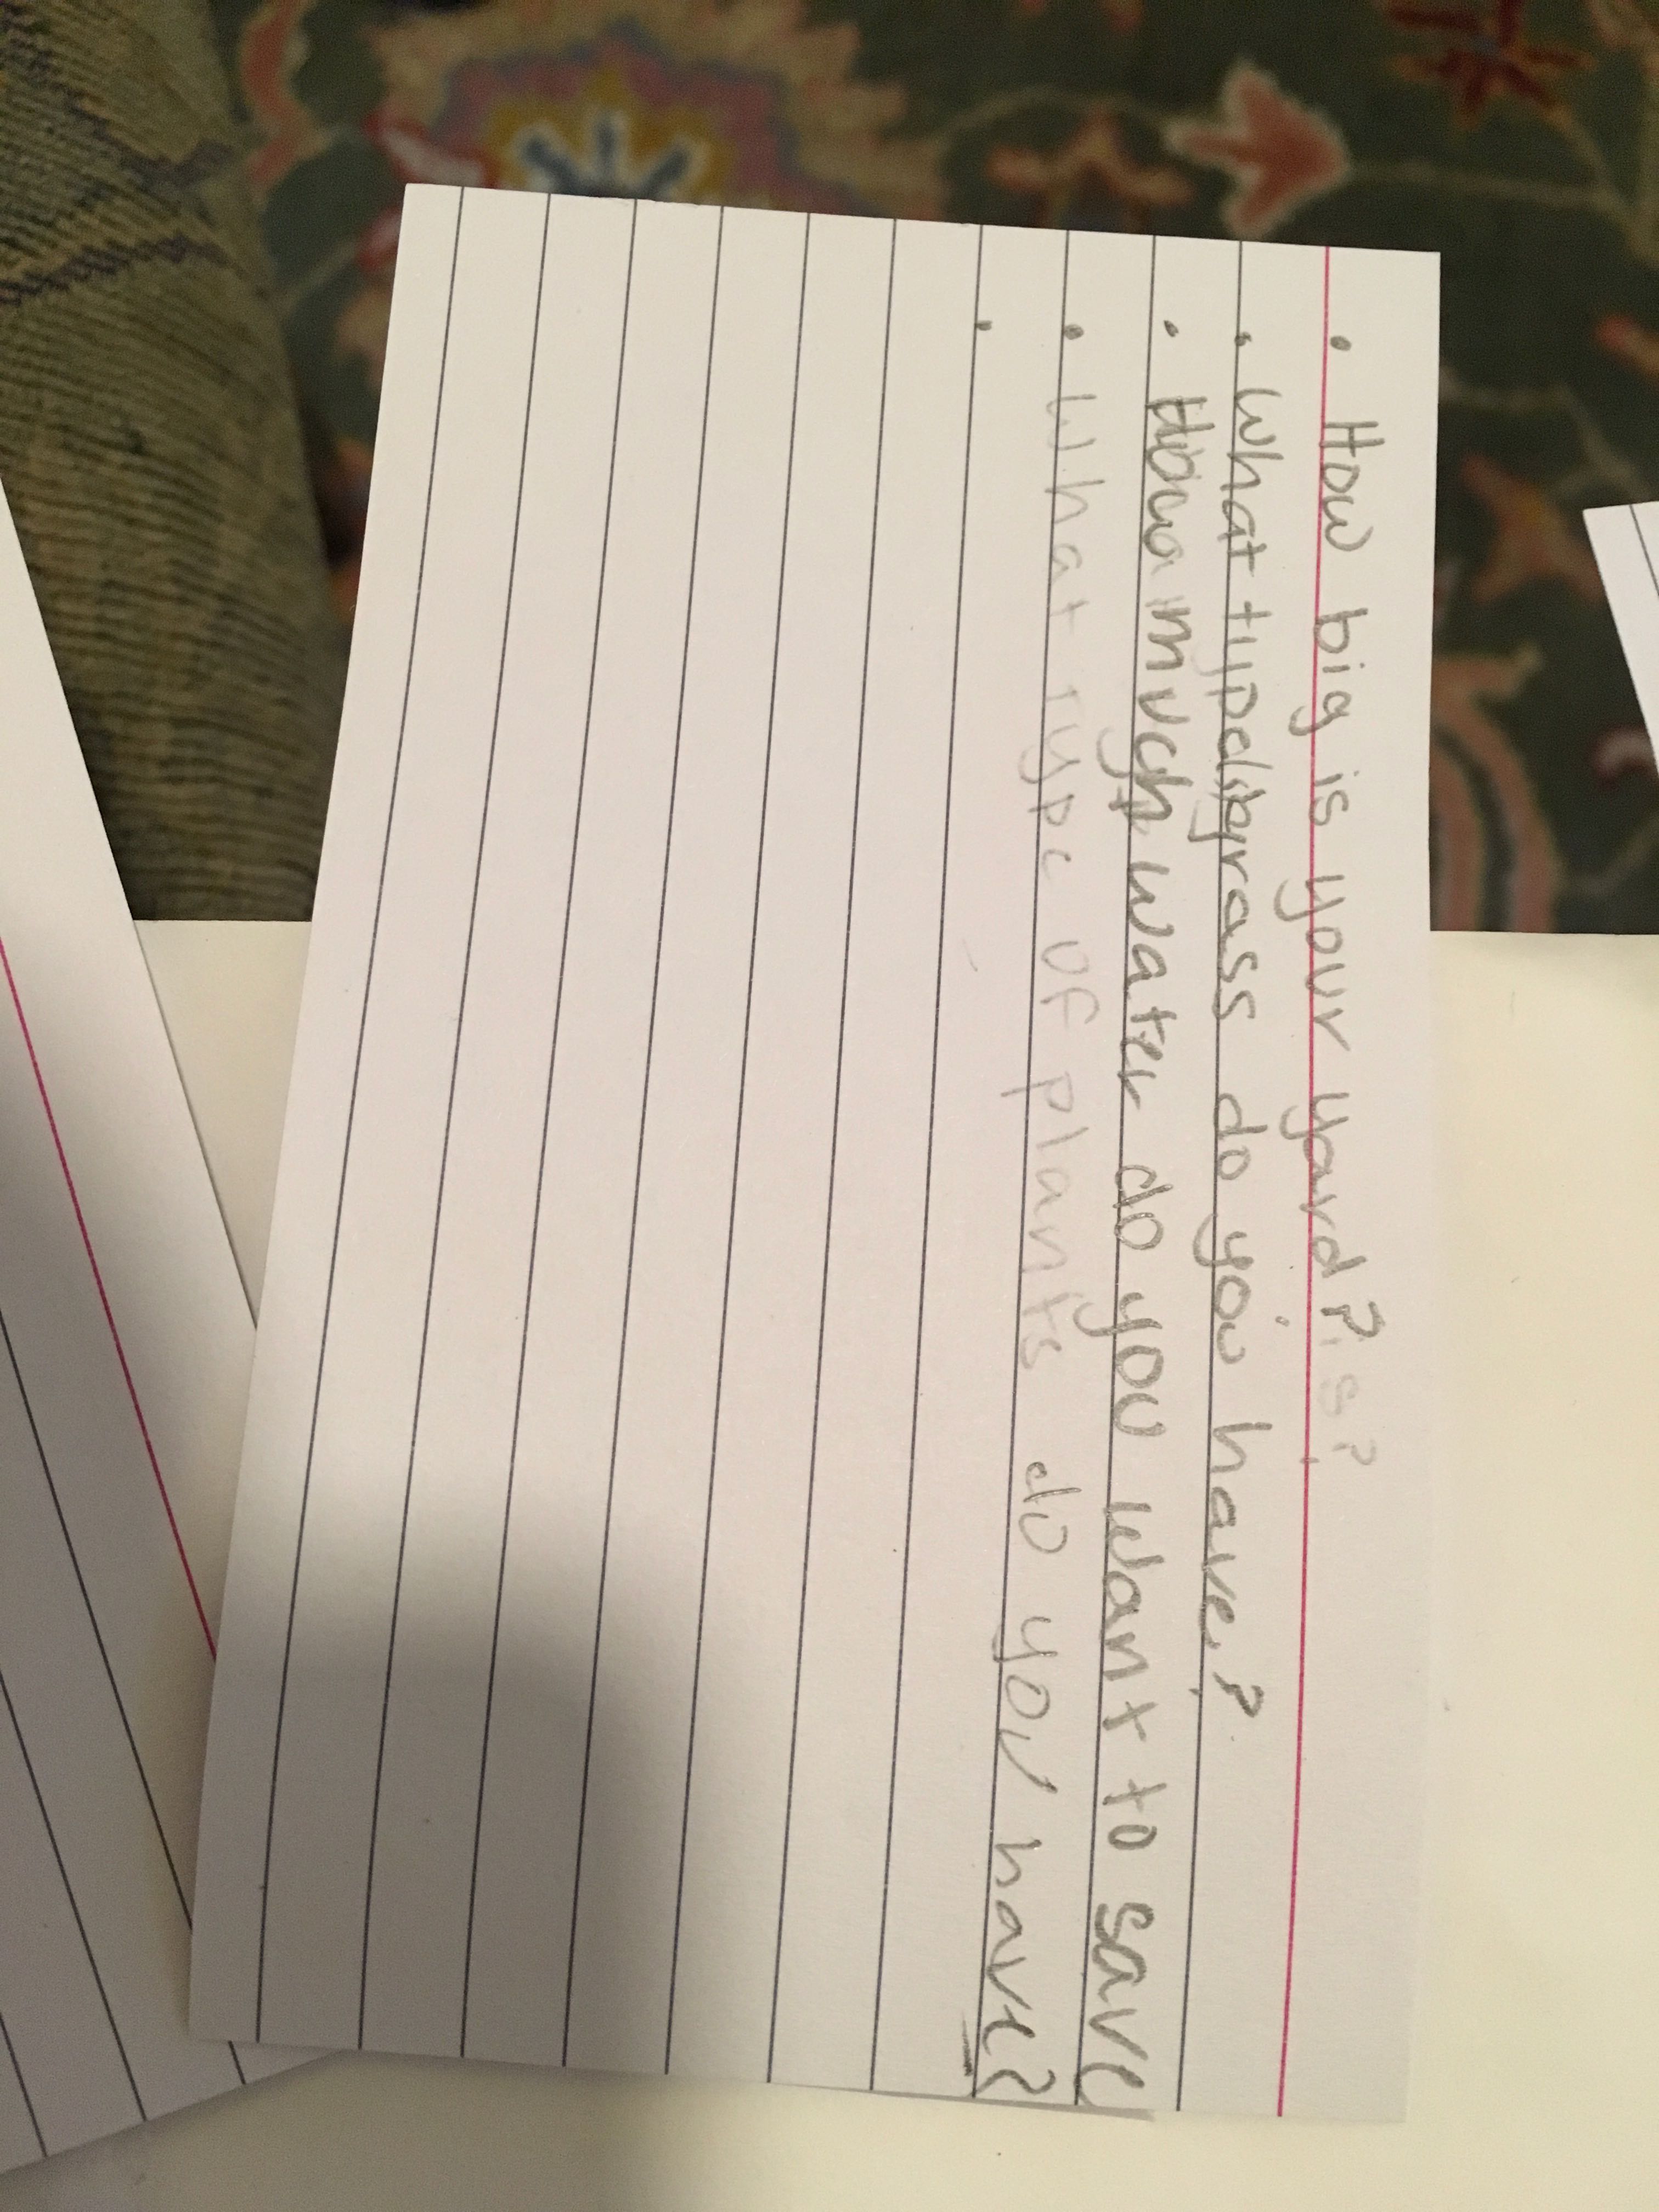 • How big is your yard?
• What type of grass do you have?
• How much water do you want to save
• What type of plants do you have?
•